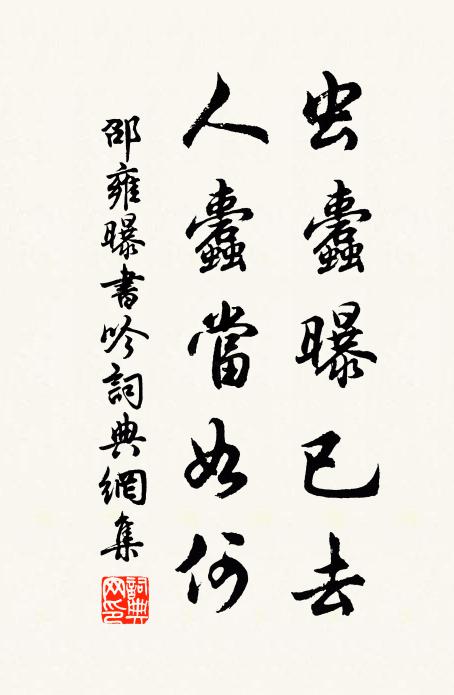 虫蠹曝已去
人蠹當如何
邵雍曝書吟詞典網集
詞典网印